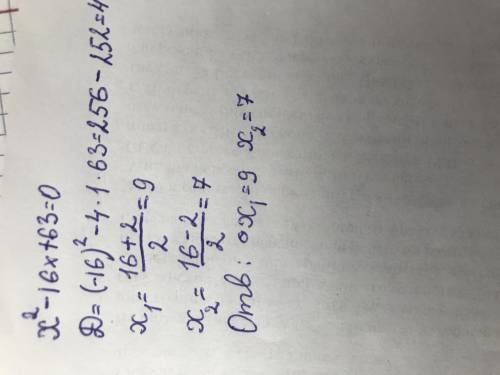 x² - 16x + 63 = 0
D = (-16)² - 4 · 1 · 63 = 256 - 252 = 4
x₁ = (16 + 2)/2 = 9
x₂ = (16 - 2)/2 = 7
Отв: x₁ = 9 x₂ = 7